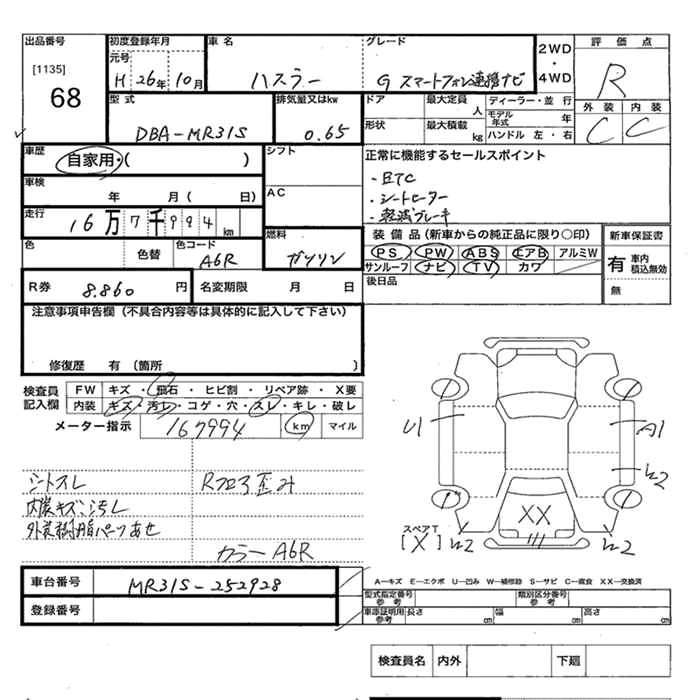 出品番号 [1135] 68
初度登録年月 元号 H 26年 10月
車名 ハスラー
グレード G スマートフォン連携ナビ
2WD・4WD
評価点 R
外装 C 内装 C
型式 DBA-MR31S
排気量又はkw 0.65
ドア 形状
最大定員 人
最大積載 kg
ディーラー・並行
モデル年式 年
ハンドル 左・右
車歴 自家用・( )
シフト
AC
車検 年 月( 日)
走行 16万7千994km
色 色替 色コード A6R
燃料 ガソリン
R券 8.860円
名変期限 月 日
正常に機能するセールスポイント
・ETC
・シートヒーター
・軽減ブレーキ
装備品(新車からの純正品に限り○印)
PS PW ABS エアB アルミW
サンルーフ ナビ TV カワ
後日品
新車保証書
有 車内積込無効
無
注意事項申告欄(不具合内容等は具体的に記入して下さい)
修復歴 有(箇所 )
検査員記入欄
FW キズ・飛石・ヒビ割・リペア跡・X要
内装 キズ・汚レ・コゲ・穴・スレ・キレ・破レ
メーター指示 167994 km マイル
シートスレ
内装キズ、汚レ
外装樹脂パーツあせ
Rフロア歪み
カラーA6R
U1
A1
W2
XX
スペアT
[X]
W2
W2
車台番号 MR31S-252928
登録番号
A―キズ E―エクボ U―凹み W―補修跡 S―サビ C―腐食 XX―交換済
型式指定番号 参考
類別区分番号 参考
車庫証明用参考 長さ cm 幅 cm 高さ cm
検査員名 内外 下廻